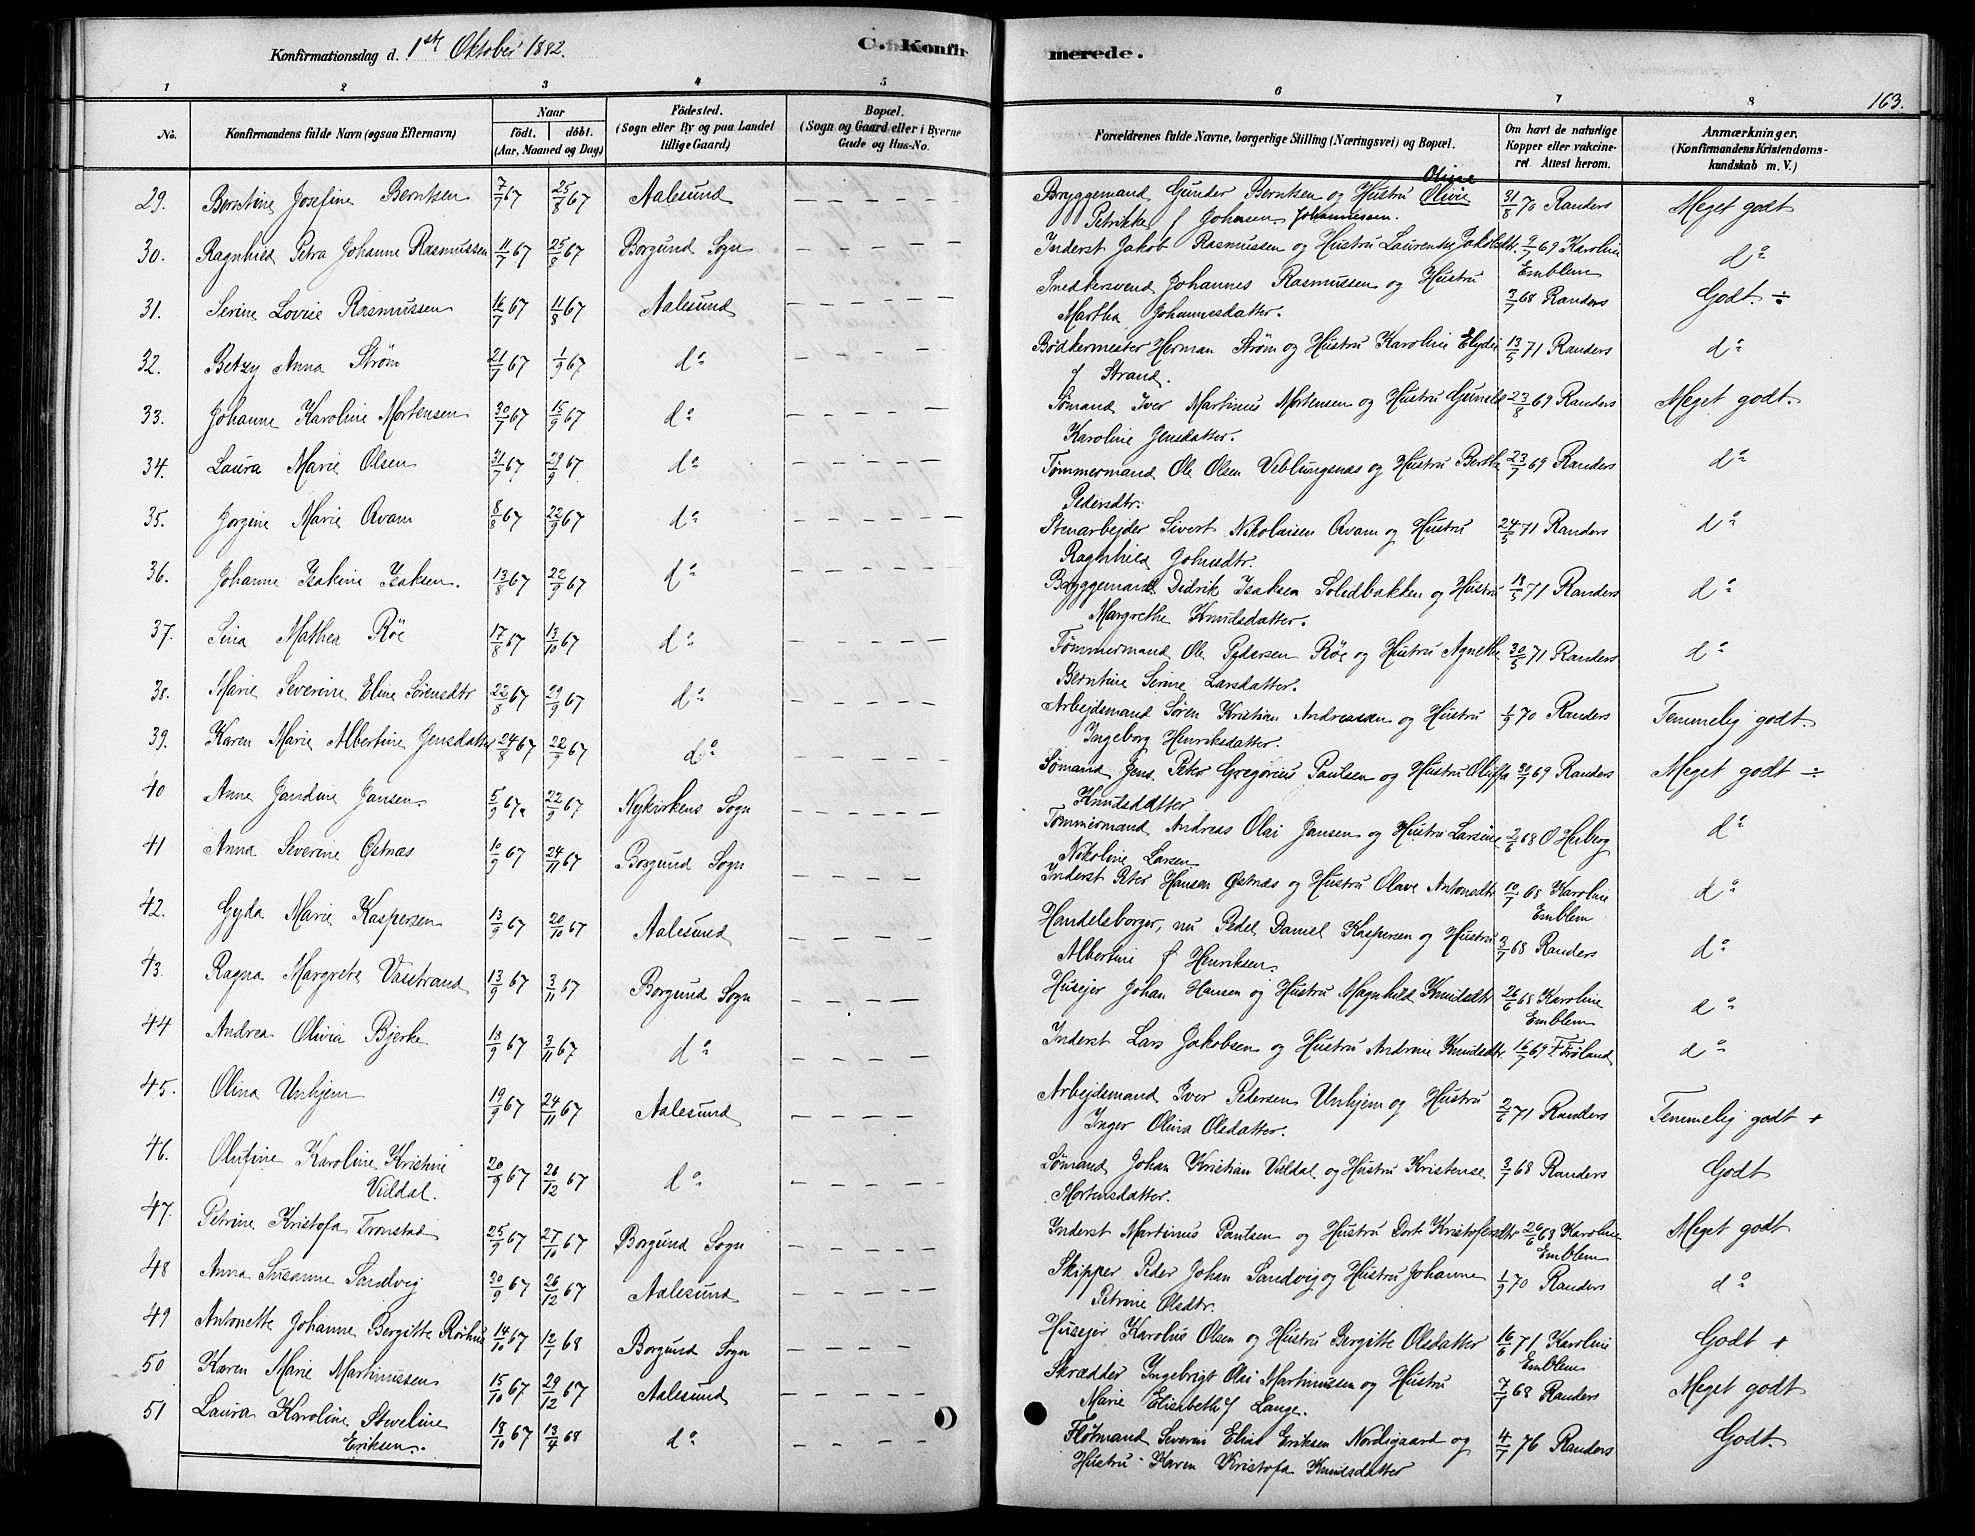 Konfirmationsdag d. 1ste Oktober 1882.
C. Konfirmerede.
163.
1 2 3 4 5 6 7 8
No.
Konfirmandens fulde Navn (ogsaa Efternavn)
Naar
födt. döbt.
(Aar, Maaned og Dag)
Födested.
(Sogn eller By og paa Landet
tillige Gaard)
Bopæl.
(Sogn og Gaard eller i Byerne
Gade og Hus-No.
Forældrenes fulde Navne, borgerlige Stilling (Næringsvei) og Bopæl.
Om havt de naturlige
Kopper eller vakcineret
Attest herom.
Anmærkninger.
(Konfirmandens Kristendomskundskab m. V.)
29. Berntine Josefine Berntsen 7/7 67 25/8 67 Aalesund Bryggemand Gunder Berntsen og Hustru Olivie Oline 31/8 70 Randers Meget godt
Petrikke f Johnsen. Johannesen.
30. Ragnhild Petra Johanne Rasmussen 11/7 67 25/8 67 Borgund Sogn Inderst Jakob Rasmussen og Hustru Laurentse Jakobsdtr. 9/7 69 Karoline Emblem do
31. Serine Lovise Rasmussen 16/7 67 11/8 67 Aalesund Snedkersvend Johannes Rasmussen og Hustru 3/7 68 Randers Godt. ÷
Martha Johannesdatter.
32. Betzy Anna Strøm 21/7 67 1/9 67 do Bødkermester Herman Strøm og Hustru Karoline 13/5 71 Randers do
f Strand.
33. Johanne Karoline Mortensen 30/7 67 15/9 67 do Sømand Iver Martinus Mortensen og Hustru Gunild 23/8 69 Randers Meget godt.
Karoline Jensdatter.
34. Laura Marie Olsen 31/7 67 29/9 67 do Tømmermand Ole Olsen Veblungsnæs og Hustru Berthe 23/7 69 Randers do
Pedersdtr.
35. Jorgine Marie Qvam 8/8 67 22/9 67 do Stenarbejder Sivert Nikolaisen Qvam og Hustru 24/5 71 Randers do
Ragnhild Johnsdtr.
36. Johanne Isakine Isaksen. 13/8 67 22/9 67 do Bryggemand Didrik Isaksen Solidbakken og Hustru 18/5 71 Randers do
Margrethe Knudsdatter.
37. Sina Mathea Röe 17/8 67 13/10 67 do Tømmermand Ole Pedersen Röe og Hustru Agnethe 30/5 71 Randers do
Berntine Serine Larsdatter.
38. Marie Severine Eline Sörensdtr 22/8 67 29/9 67 do Arbejdsmand Sören Kristian Andreassen og Hustru 1/9 70 Randers Temmelig godt.
Ingeborg Henriksdatter.
39. Karen Marie Albertine Jensdatter 24/8 67 22/9 67 do Sømand Jens Peter Gregorius Paulsen og Hustru Oliffa 30/7 69 Randers Meget godt ÷
Knudsdatter
40 Anne Jandine Jansen. 5/9 67. 22/9 67 Nykirkens Sogn Tømmermand Andreas Olai Jansen og Hustru Larsine 2/6 68 O Heiberg do
Nikoline Larsen
41 Anna Severine Østnæs 10/9 67 24/11 67 Borgund Sogn Inderst Peter Hansen Østnæs og Hustru Olave Antonsdtr 10/7 68 Karoline Emblem do
42. Gyda Marie Kaspersen 13/9 67 20/10 67 Aalesund Handelsborger, nu Pedel Daniel Kaspersen og Hustru 3/7 68 Randers do
Albertine f Henriksen.
43. Ragna Margrete Vasstrand 13/9 67 3/11 67 Borgund Sogn Husejer Johan Hansen og Hustru Magnhild Knudsdtr 26/6 68 Karoline Emblem do
44 Andrea Olivia Bjerke 18/9 67 3/11 67 do Inderst Lars Jakobsen og Hustru Andrine Knudsdtr 16/7 69 F. Frøland do
45. Olina Unhjem 19/9 67 24/11 67 Aalesund Arbejdsmand Iver Pedersen Unhjem og Hustru 2/6 71 Randers Temmelig godt +
Inger Olina Olsdatter.
46. Olufine Karoline Kristine 20/9 67 26/12 67 do Sømand Johan Kristian Vildal og Hustru Kristense 3/7 68 Randers Godt
Vildal. Mortensdatter.
47. Petrine Kristofa Tronstad 25/9 67 27/10 67 Borgund Sogn Inderst Martinus Paulsen og Hustru Dort. Kristofersdtr 26/6 68 Karoline Emblem Meget godt
48 Anna Susanne Sandvig 30/9 67 26/12 67 Aalesund Skipper Peder Johan Sandvig og Hustru Johanne 1/9 70 Randers do
Petrine Olsdtr.
49 Antonette Johanne Bergitte Rörhus 14/10 67 12/1 68 Borgund Sogn Husejer Karolus Olsen og Hustru Bergitte Olsdatter 16/6 71 Karoline Emblem Godt +
50 Karen Marie Martinussen 15/10 67 29/12 67 Aalesund Skrædder Ingebrigt Olai Martinussen og Hustru 7/7 68 Randers Meget godt
Marie Elisabeth f Lange.
51 Laura Karoline Steveline 18/10 67 13/4 68 do Fløtmand Severin Elias Eriksen Nordigaard og 4/7 76 Randers Godt.
Eriksen. Hustru Karen Kristofa Knudsdatter